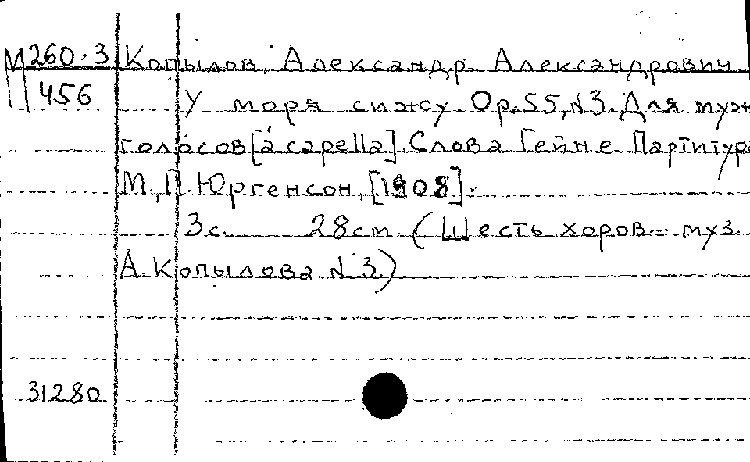 М260.3 Копылов, Александр Александрович
11456 У моря сижу. Ор.55, N3. Для муж
голосов [a capella]. Слова Гейне. Партитура
М., П. Юргенсон, [1908].
3с. 28см (Шесть хоров муз.
А. Копылова N3.)
31280